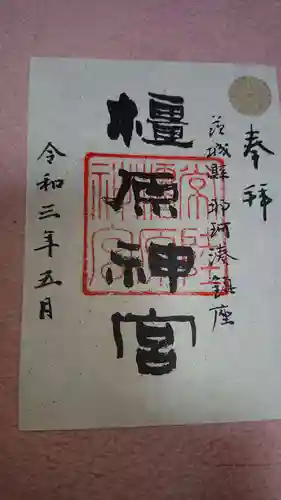 奉拝
茨城県那珂湊鎮座
橿原神宮
令和三年五月